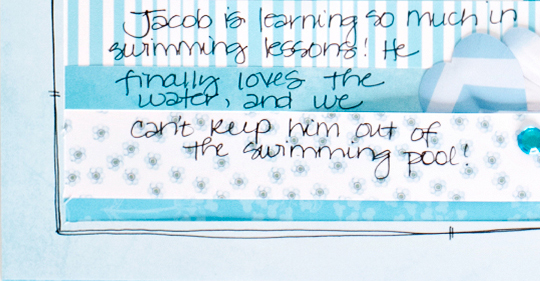 Jacob is learning so much in
swimming lessons! He
finally loves the
water, and we
can't keep him out of
the swimming pool!